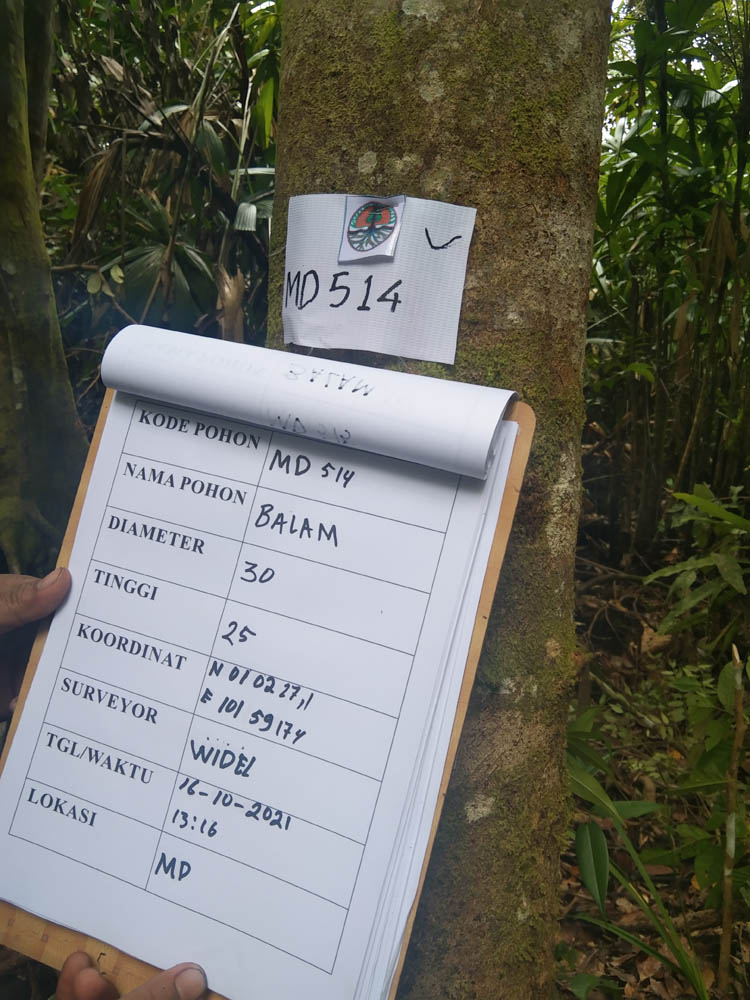 MD 514
BALAM
KODE POHON MD 514
NAMA POHON BALAM
DIAMETER 30
TINGGI 25
KOORDINAT N 01 02 27,1
E 101 59 174
SURVEYOR WIDEL
TGL/WAKTU 16-10-2021
13:16
LOKASI MD